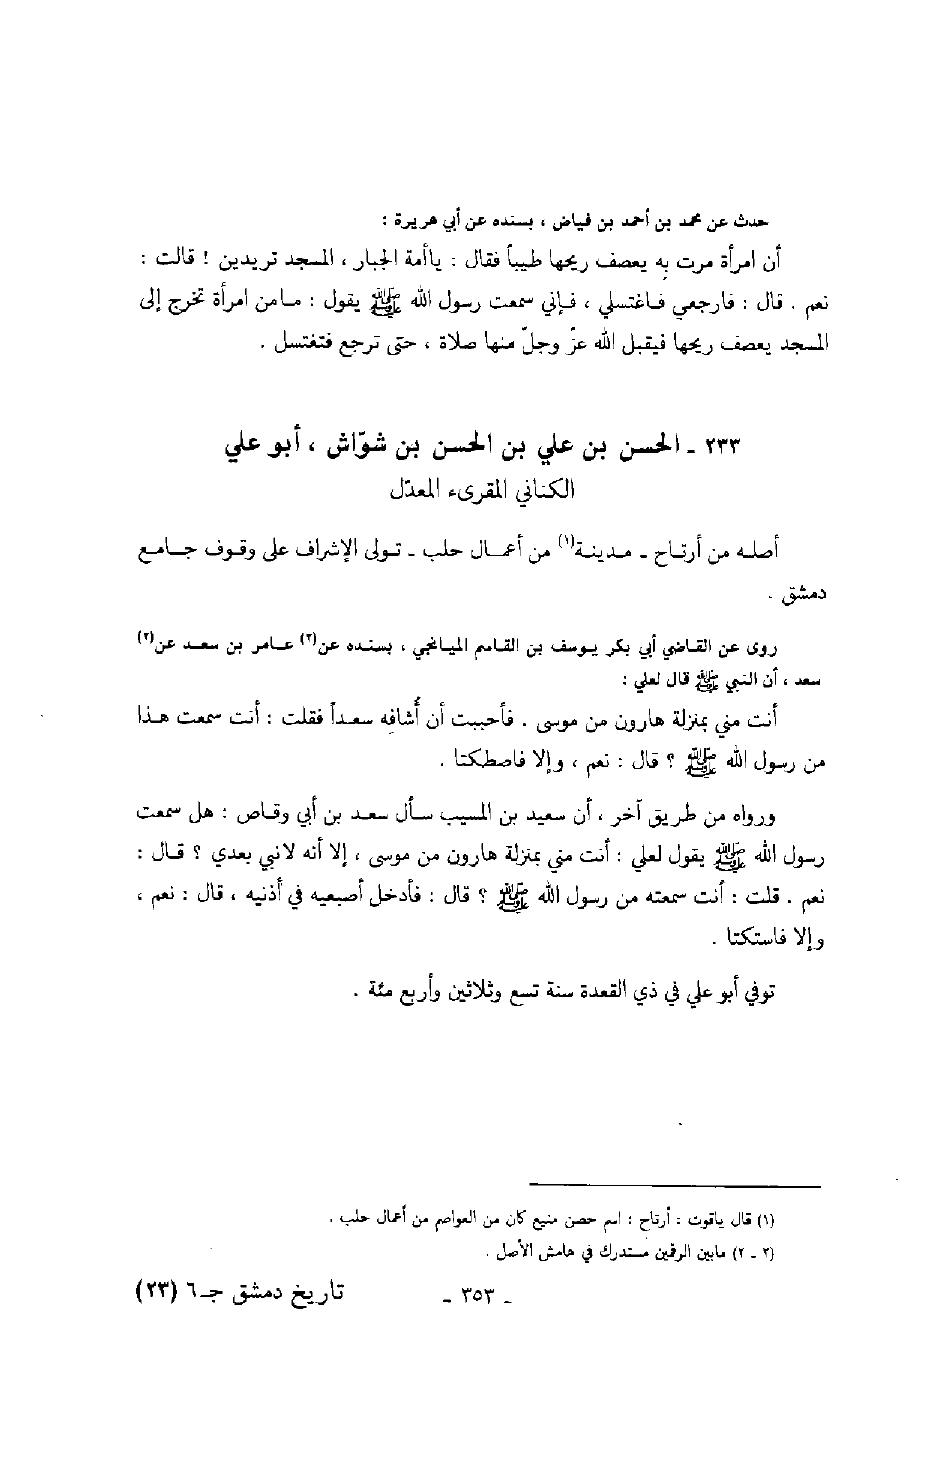 حدث عن محمد بن أحمد بن فياض ، بسنده عن أبي هريرة :
أن امرأة مرت به يعصف ريحها طيباً فقال : ياأمة الجبار ، المسجد تريدين ! قالت :
نعم . قال : فارجعي فاغتسلي ، فإني سمعت رسول الله ﷺ يقول : مامن امرأة تخرج إلى
المسجد يعصف ريحها فيقبل الله عزّ وجلّ منها صلاة ، حتى ترجع فتغتسل .
٢٣٣ ـ الحسن بن علي بن الحسن بن شوّاش ، أبو علي
الكناني المقرىء المعدّل
أصله من أرتاح ـ مدينة(١) من أعمال حلب ـ تولى الإشراف على وقوف جامع
دمشق .
روى عن القاضي أبي بكر يوسف بن القاسم الميانجي ، بسنده عن(٢) عامر بن سعد عن(٢)
سعد ، أن النبي ﷺ قال لعلي :
أنت مني بمنزلة هارون من موسى . فأحببت أن أُشافه سعداً فقلت : أنت سمعت هذا
من رسول الله ﷺ ؟ قال : نعم ، وإلا فاصطكتا .
ورواه من طريق آخر ، أن سعيد بن المسيب سأل سعد بن أبي وقاص : هل سمعت
رسول الله ﷺ يقول لعلي : أنت مني بمنزلة هارون من موسى ، إلا أنه لانبي بعدي ؟ قال :
نعم . قلت : أنت سمعته من رسول الله ﷺ ؟ قال : فأدخل أصبعيه في أذنيه ، قال : نعم ،
وإلا فاستكتا .
توفي أبو علي في ذي القعدة سنة تسع وثلاثين وأربع مئة .
(١) قال ياقوت : أرتاح : اسم حصن منيع كان من العواصم من أعمال حلب .
(٢ ـ ٢) مابين الرقمين مستدرك في هامش الأصل .
ـ ٣٥٣ ـ تاريخ دمشق جـ٦ (٢٣)